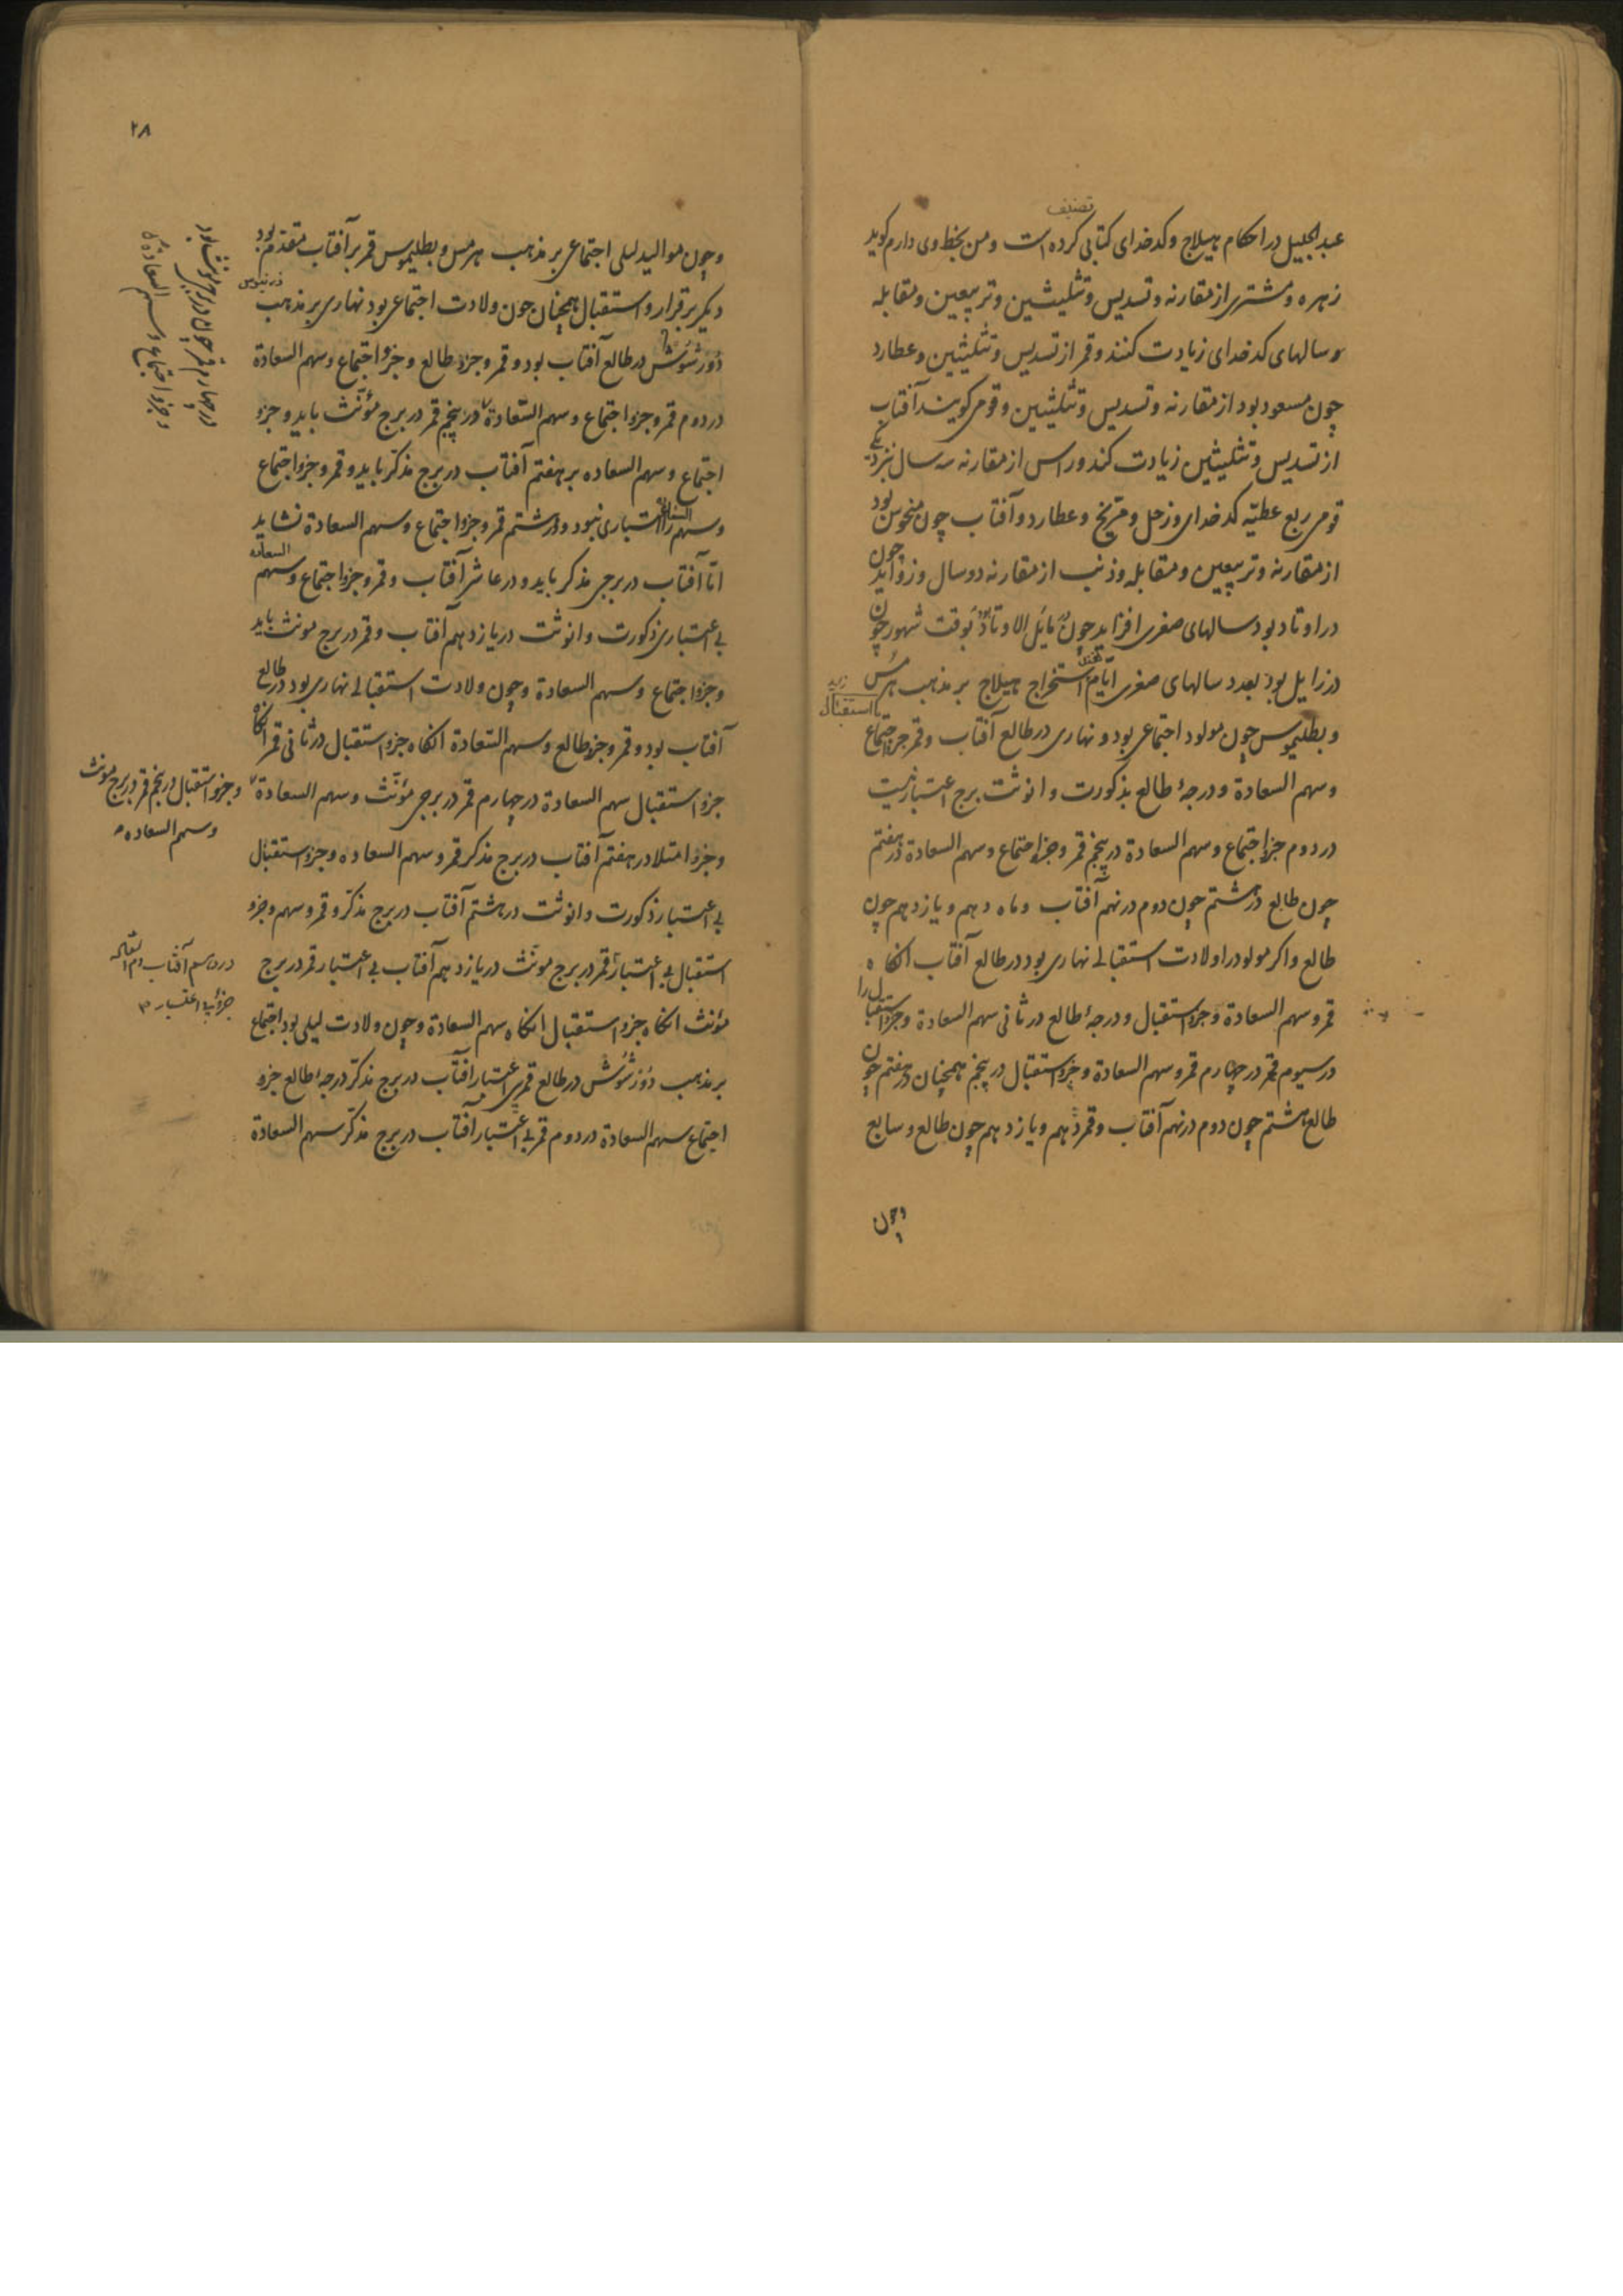 تصنیف
عبد الجلیل در احکام هیلاج و کدخدای کتابی کرده است و من بخط وی دارم کوید
زهره و مشتری از مقارنه و تسدیس و تثلیثین و تربیعین و مقابله
و سالهای کدخدای زیادت کنند و قمر از تسدیس و تثلیثین و عطارد
چون مسعود بود از مقارنه و تسدیس و تثلیثین و قومی کویند آفتاب
از تسدیس و تثلیثین زیادت کند و راس از مقارنه سه سال بنزدیک
قومی ربع عطیّه کدخدای و زحل و مریخ و عطارد و آفتاب چون منحوس بود
از مقارنه و تربیعین و مقابله و ذنب از مقارنه دو سال و زواید چون
در اوتاد بود سالهای صغری افزاید چون مایل الاوتاد بود بوقت شهور چون
در زایل بود بعدد سالهای صغری ایّام استخراج هیلاج بر مذهب هرمس
و بطلیموس چون مولود اجتماعی بود و نهاری در طالع آفتاب و قمر جزو اجتماع
یا استقبال
و سهم السعادة و درجهٔ طالع بذکورت و انوثت برج اعتبار نیست
در دوم جزو اجتماع و سهم السعادة در پنجم قمر و جزو اجتماع و سهم السعادة در هفتم
چون طالع در هشتم چون دوم در نهم آفتاب و ماه دهم و یازدهم چون
طالع و اکر مولود را ولادت استقبالی نهاری بود در طالع آفتاب انکاه
قمر و سهم السعادة و جزو استقبال و درجهٔ طالع در ثانی سهم السعادة و جزو استقبال را
در سیوم قمر در چهارم قمر و سهم السعادة و جزو استقبال در پنجم همچنان در هفتم چون
طالع هشتم چون دوم در نهم آفتاب و قمر دهم و یازدهم چون طالع و سابع
وچون
۲۸
وچون موالید لیلی اجتماعی بر مذهب هرمس و بطلیموس قمر بر آفتاب مقدم بود
دیکر برقرار و استقبال همچنان چون ولادت اجتماعی بود نهاری بر مذهب
دُوْرُسُوْس در طالع آفتاب بود و قمر و جزو طالع و جزو اجتماع و سهم السعادة
در دوم قمر و جزو اجتماع و سهم السّعادة در پنجم قمر در برج مؤنّث باید و جزو
اجتماع و سهم السعاده بر هفتم آفتاب در برج مذکر باید و قمر و جزو اجتماع
و سهم السعادة را اعتباری نبود و در هشتم قمر و جزو اجتماع و سهم السعادة نشاید
امّا آفتاب در برجی مذکر باید و در عاشر آفتاب و قمر و جزو اجتماع و سهم السعاده
بی اعتباری ذکورت و انوثت در یازدهم آفتاب و قمر در برج مونث باید
و جزو اجتماع و سهم السعادة و چون ولادت استقبالی نهاری بود در طالع
آفتاب بود و قمر و جزو طالع و سهم السّعادة انکاه جزو استقبال در ثانی قمر انکاه
جزو استقبال سهم السعادة در چهارم قمر در برجی مؤنّث و سهم السعادة
و جزو امتلا در هفتم آفتاب در برج مذکر قمر و سهم السعاده و جزو استقبال
بی اعتبار ذکورت و انوثت در هشتم آفتاب در برج مذکر و قمر و سهم و جزو
استقبال بی اعتبار قمر در برج مونّث در یازدهم آفتاب بی اعتبار قمر در برج
مؤنث انکاه جزو استقبال انکاه سهم السعادة و چون ولادت لیلی بود اجتماع
بر مذهب دُوْرُسُوْس در طالع قمر بی اعتبار آفتاب در برج مذکّر درجهٔ طالع جزو
اجتماع سهم السعادة در دوم قمر بی اعتبار آفتاب در برج مذکّر سهم السعادة
در چهارم قمر چون در برج مونث بود
و جزو اجتماع و سهم السعادة
و جزو استقبال در پنجم قمر در برج مونث
و سهم السعاده